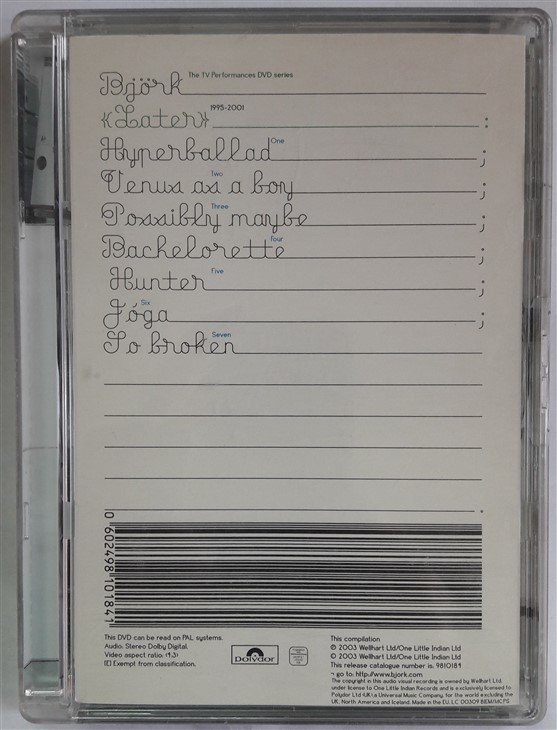 Björk The TV Performances DVD series
《Later》 1995-2001 :
Hyperballad One ;
Venus as a boy Two ;
Possibly maybe Three ;
Bachelorette Four ;
Hunter Five ;
Jóga Six ;
So broken Seven
.
0 602498 101841
This DVD can be read on PAL systems.
Audio: Stereo Dolby Digital.
Video aspect ratio: (4:3)
(E) Exempt from classification.
Polydor
This compilation
℗ 2003 Wellhart Ltd/One Little Indian Ltd
© 2003 Wellhart Ltd/One Little Indian Ltd
This release catalogue number is. 9810184
¬ go to: http://www.bjork.com
The copyright in this audio visual recording is owned by Wellhart Ltd.
under license to One Little Indian Records and is exclusively licensed to
Polydor Ltd (UK),a Universal Music Company, for the world excluding the
UK, North America and Iceland. Made in the EU. LC 00309 BIEM/MCPS